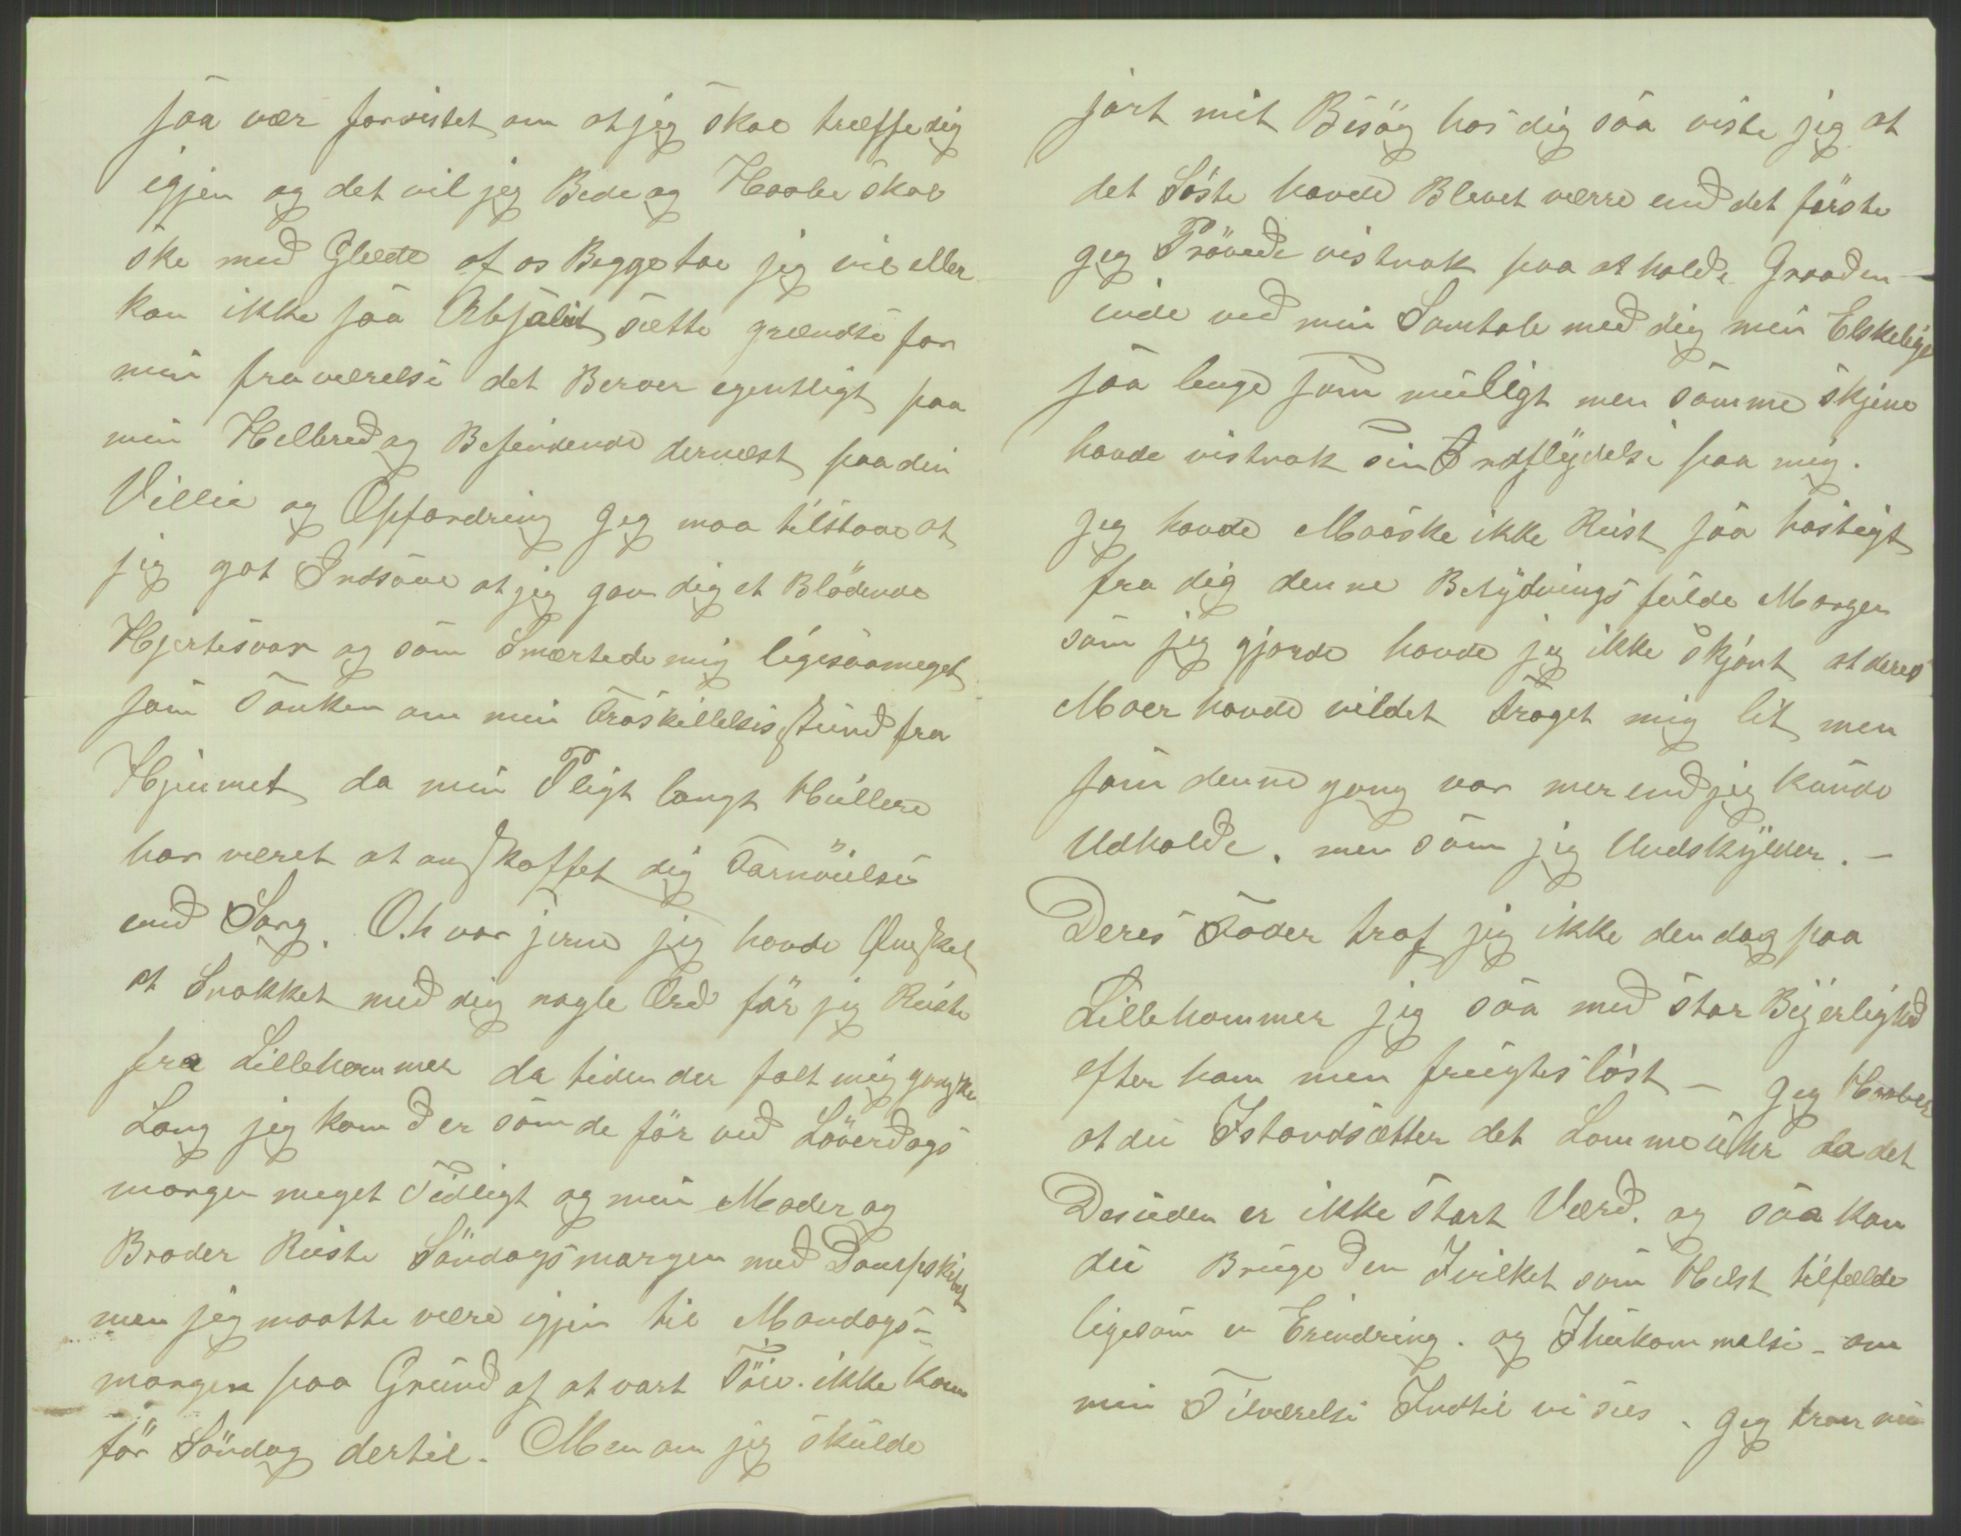 saa vær forvistet om at jeg skal træffe dig
igjen og det vil jeg Bede og Haabe skal
ske med Glæde af os Begge to jeg vil eller
kan ikke saa Absalut sætte grændse for
min fraværelse det Beroer egentligt paa
min Helbred og Befindende dernæst paa din
Villie og Opfordring Jeg maa tilstaae at
jeg got Indsaae at jeg gav dig et Blödende
Hjertesaar og som Smærtede mig ligesaameget
som Tanken om min Adskillelses stund fra
Hjemmet da min Pligt langt Hullere
har været at anskaffet dig Fornöielse
end Sorg. O. hvor jerne jeg havde Ønsket
at Snakket med dig nogle Ord för jeg Reiste
fra Lillehammer da tiden der falt mig ganske
Lang jeg kom der som de för ved Löverdags
morgen meget Tidligt og min Moder og
Broder Reiste Söndagsmorgen med Dampskibet
men jeg maatte være igjen til Mandags-
morgen paa Grund af at vort Töi. ikke kom
för Söndag dertil. Men om jeg skulde
jort mit Besög hos dig saa viste jeg at
det Siste havde Blevet værre end det förste
Jeg Prövede vistnok paa at holde Graaden –
inde ved min Samtale med dig min Elskelige
saa lenge som muligt men somme skjene
havde vistnok sin Indflydelse paa mig.
Jeg havde Maaske ikke Reist saa hastigt
fra dig denne Betydnings fulde Morgen
som jeg gjorde havde jeg ikke skjönt at deres
Moer havde vildet Traget mig lit men
som denne gang var mer end jeg kunde
Udholde. men som jeg Undskylder. –
Deres Fader traf jeg ikke den dag paa
Lillehammer jeg saa med stor Bijerlighed
efter ham men frugtes löst – Jeg Haaber
at du Istandsætter det Lommeuhr da det
Desuden er ikke stort Værd. og saa kan
du Bruge den Ivilket som Helst tilfælde
ligesom en Erindring. og Ihukommelse – om
min Tilværelse Indtil vi sees. Jeg troer nu